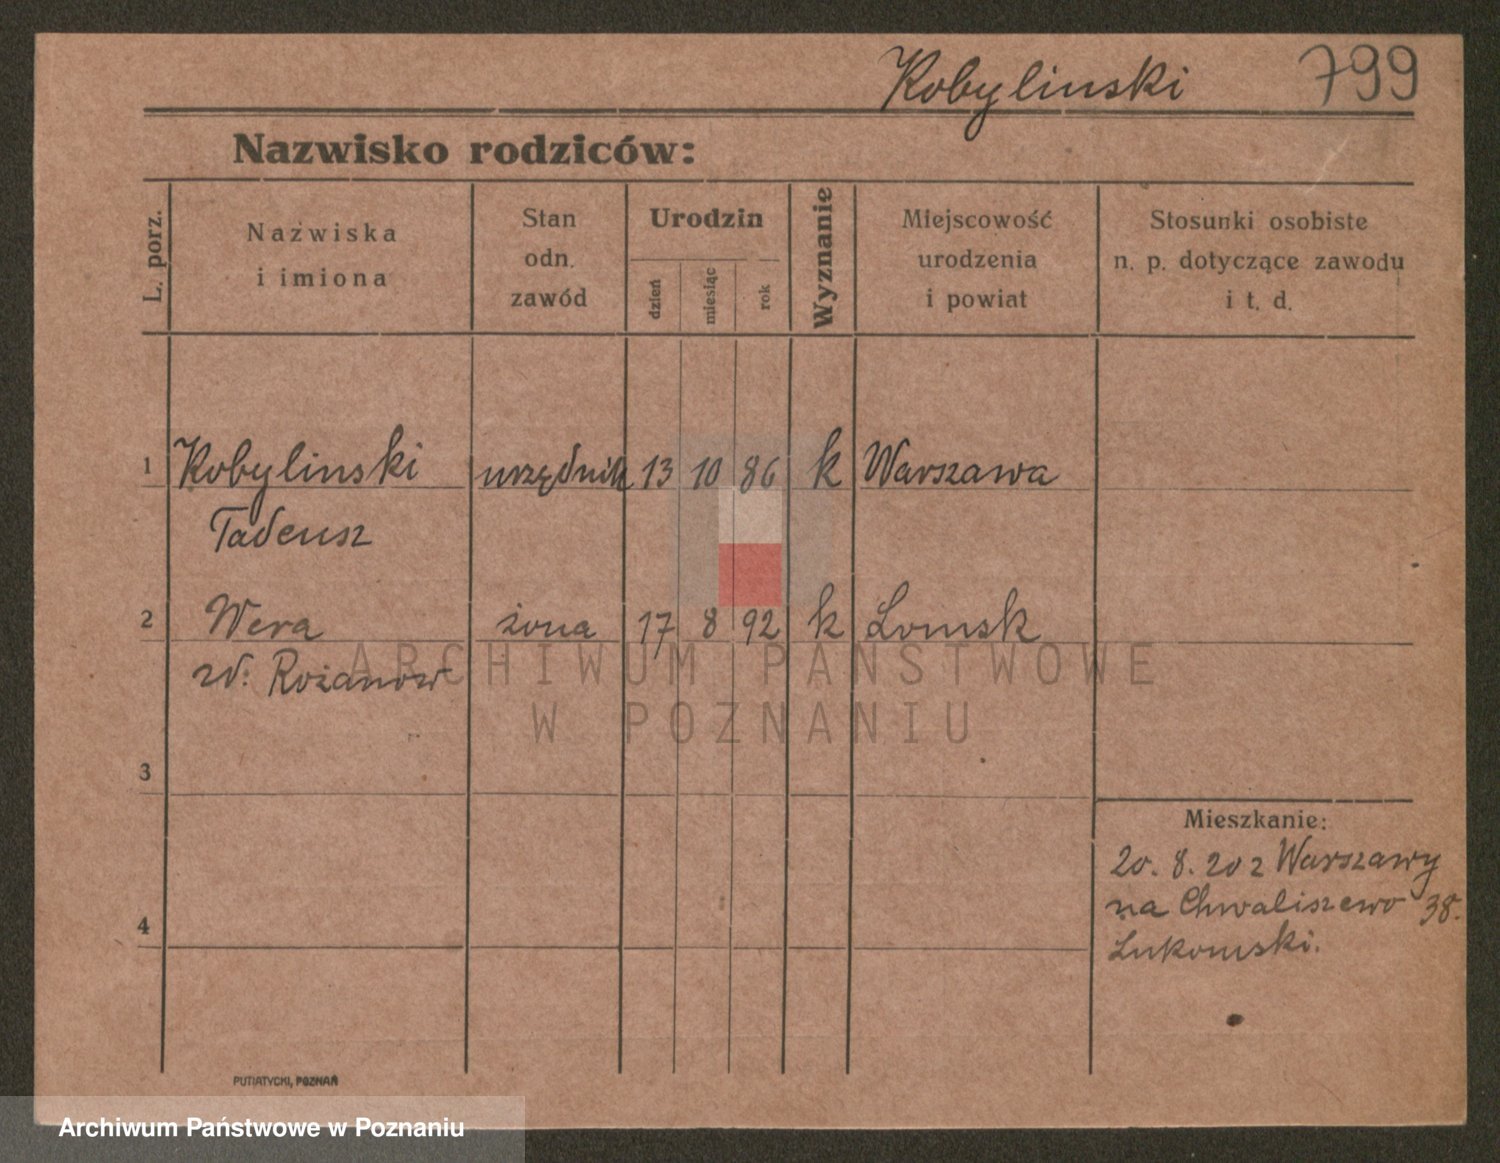 Kobylinski 799
Nazwisko rodziców:
L. porz.
Nazwiska
i imiona
Stan
odn.
zawód
Urodzin
dzień
miesiąc
rok
Wyznanie
Miejscowość
urodzenia
i powiat
Stosunki osobiste
n. p. dotyczące zawodu
i t. d.
1 Kobylinski urzędnik 13 10 86 k Warszawa
Tadeusz
2 Wera żona 17 8 92 k Lomsk
Rożanow
ARCHIWUM PAŃSTWOWE
W POZNANIU
3
Mieszkanie:
20. 8. 20 z Warszawy
na Chwaliszewo 38.
4
Lukomski.
PUTIATYCKI, POZNAŃ
Archiwum Państwowe w Poznaniu